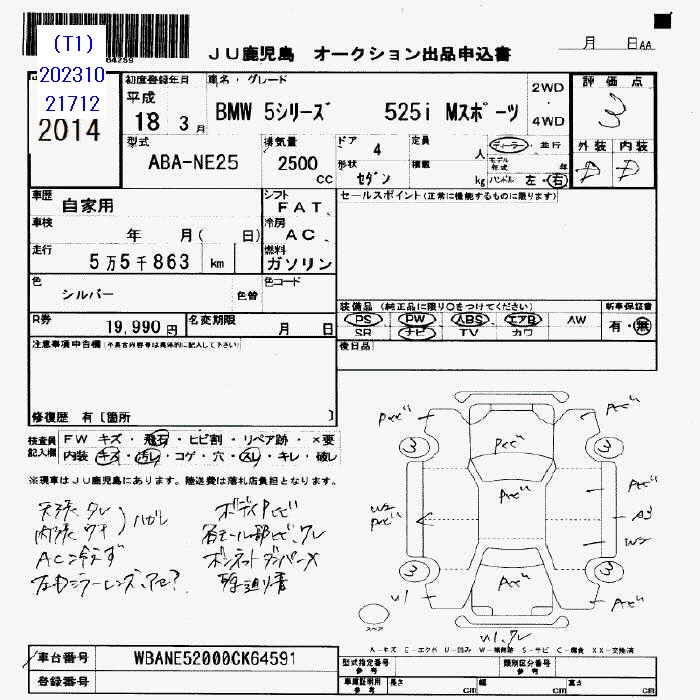 64259
(T1)
202310
21712
2014
JU鹿児島 オークション出品申込書
月 日AA
初度登録年月
平成
18 3月
車名・グレード
BMW 5シリーズ 525i Mスポーツ
2WD
・
4WD
評価点
3
型式
ABA-NE25
排気量
2500
CC
ドア
4
形状
セダン
定員
人
積載
kg
ディーラー・並行
モデル年式 年
ハンドル 左・右
外装 内装
D D
車歴
自家用
シフト
FAT
車検
年 月( 日)
冷房
AC
走行
5万5千863 km
燃料
ガソリン
セールスポイント(正常に機能するものに限ります)
色
シルバー
色替
色コード
R券
19,990円
名変期限
月 日
装備品(純正品に限り○をつけてください)
PS PW ABS エアB AW
SR ナビ TV カワ
新車保証書
有・無
後日品
注意事項申告欄(不具合内容等は具体的に記入して下さい)
修復歴 有[箇所 ]
検査員記入欄
FW キズ・飛石・ヒビ割・リペア跡・×要
内装 キズ・汚レ・コゲ・穴・スレ・キレ・破レ
※現車はJU鹿児島にあります。陸送費は落札店負担となります。
天張タレ
内張ウキ
ハガレ
AC冷えず
3
3
3
3
A3
W2
W2
U1
スペア
A-キズ E-エクボ U-凹み W-補修跡 S-サビ C-腐食 XX-交換済
車台番号
WBANE52000CK64591
登録番号
型式指定番号
参考
類別区分番号
参考
車庫証明用
参考
長さ cm
幅 cm
高さ cm